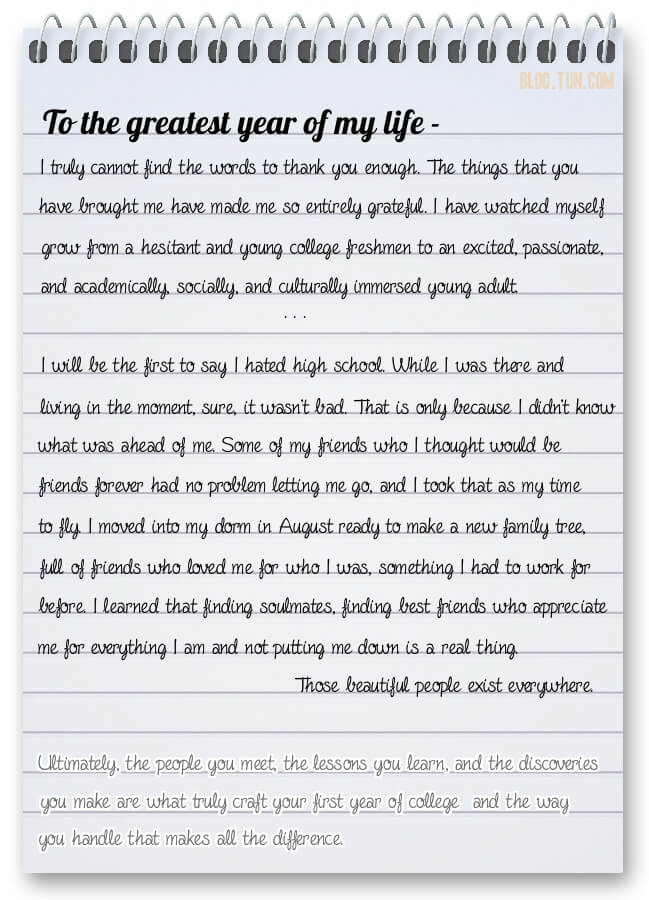 BLOG.TUN.COM
To the greatest year of my life -
I truly cannot find the words to thank you enough. The things that you
have brought me have made me so entirely grateful. I have watched myself
grow from a hesitant and young college freshmen to an excited, passionate,
and academically, socially, and culturally immersed young adult.
. . .
I will be the first to say I hated high school. While I was there and
living in the moment, sure, it wasn't bad. That is only because I didn't know
what was ahead of me. Some of my friends who I thought would be
friends forever had no problem letting me go, and I took that as my time
to fly. I moved into my dorm in August ready to make a new family tree,
full of friends who loved me for who I was, something I had to work for
before. I learned that finding soulmates, finding best friends who appreciate
me for everything I am and not putting me down is a real thing.
Those beautiful people exist everywhere.
Ultimately, the people you meet, the lessons you learn, and the discoveries
you make are what truly craft your first year of college and the way
you handle that makes all the difference.